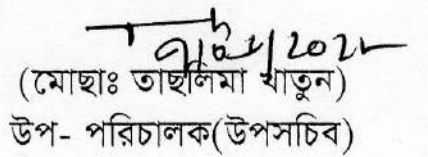 (মোছাঃ তাছলিমা খাতুন)
উপ- পরিচালক(উপসচিব)